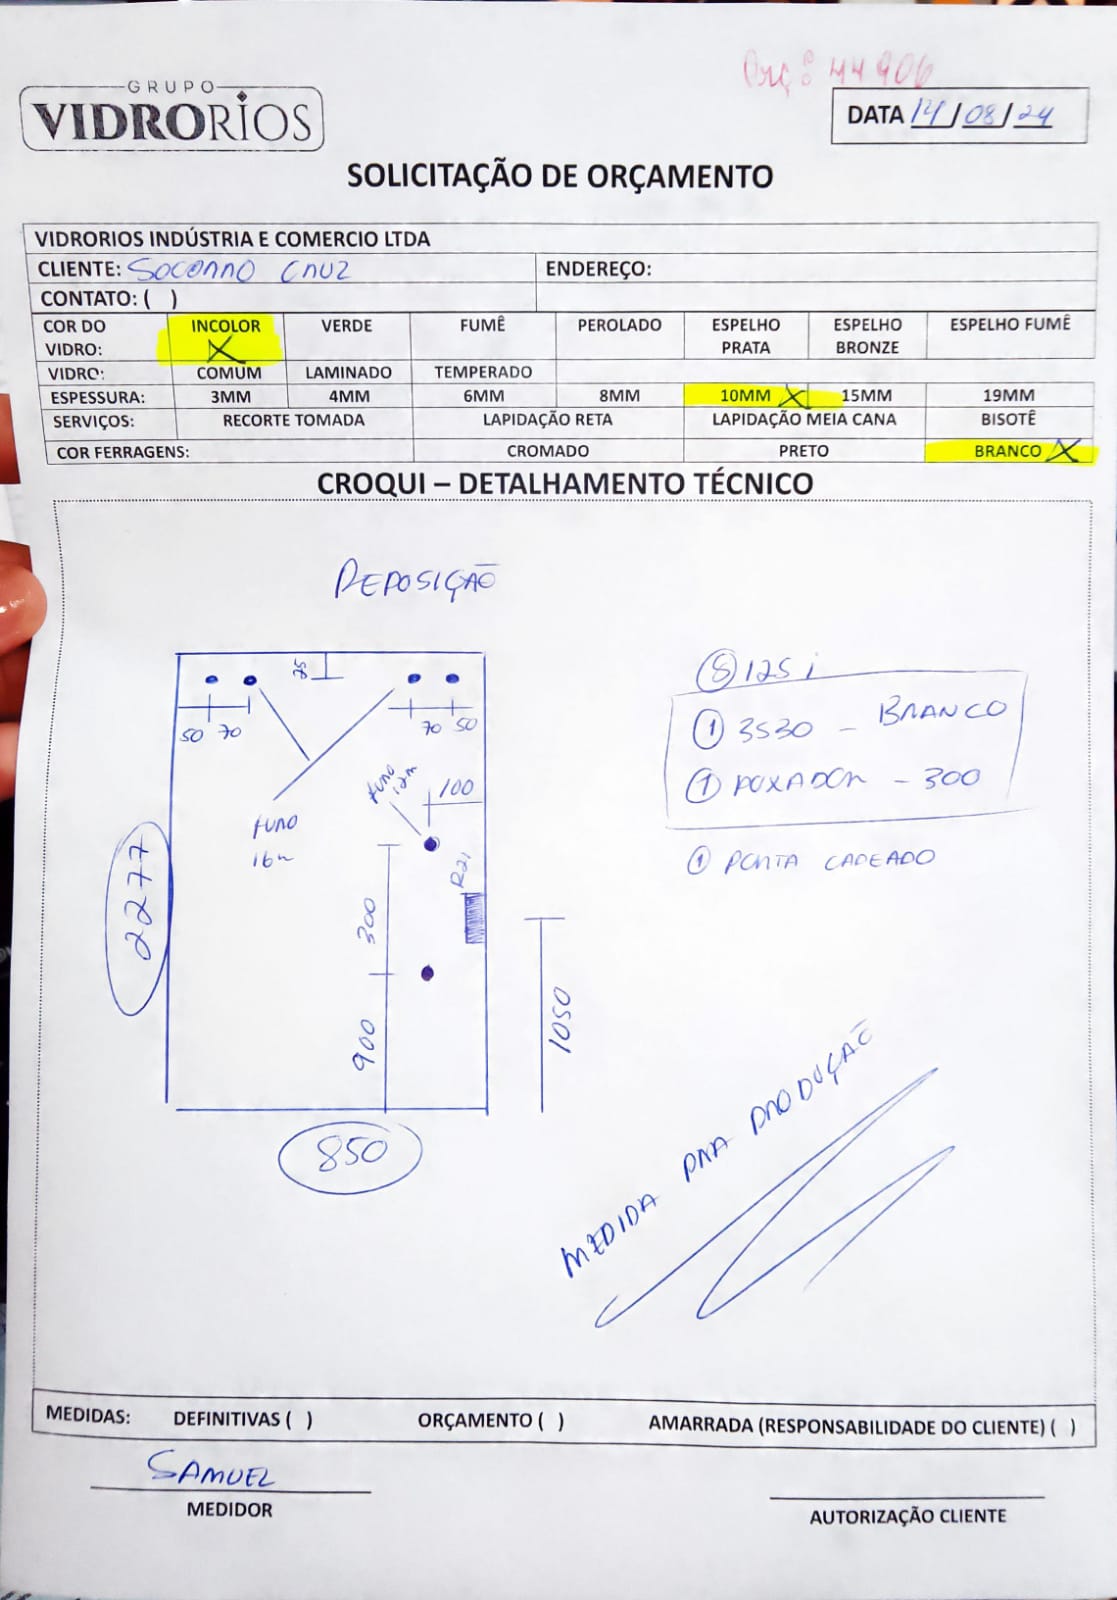 Orç: 44906
GRUPO
VIDRORIOS
DATA 14/08/24
SOLICITAÇÃO DE ORÇAMENTO
VIDRORIOS INDÚSTRIA E COMERCIO LTDA
CLIENTE: SOCORRO CRUZ
ENDEREÇO:
CONTATO: ( )
COR DO VIDRO: INCOLOR X VERDE FUMÊ PEROLADO ESPELHO PRATA ESPELHO BRONZE ESPELHO FUMÊ
VIDRO: COMUM LAMINADO TEMPERADO
ESPESSURA: 3MM 4MM 6MM 8MM 10MM X 15MM 19MM
SERVIÇOS: RECORTE TOMADA LAPIDAÇÃO RETA LAPIDAÇÃO MEIA CANA BISOTÊ
COR FERRAGENS: CROMADO PRETO BRANCO X
CROQUI – DETALHAMENTO TÉCNICO
REPOSIÇÃO
50 70
70 50
8 125i
1 3530 - BRANCO
1 PUXADOR - 300
1 PORTA CADEADO
FURO
16m
FURO
12m
100
R21
2277
300
900
1050
850
MEDIDA PRA PRODUÇÃO
MEDIDAS: DEFINITIVAS ( ) ORÇAMENTO ( ) AMARRADA (RESPONSABILIDADE DO CLIENTE) ( )
SAMUEL
MEDIDOR
AUTORIZAÇÃO CLIENTE